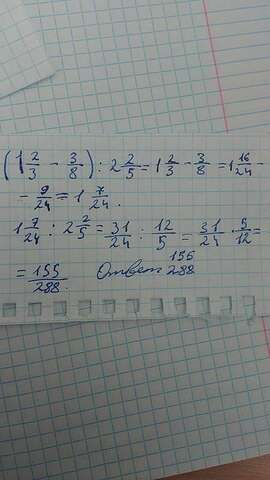 (1 2/3 - 3/8) : 2 2/5 = 1 2/3 - 3/8 = 1 16/24 -
- 9/24 = 1 7/24.
1 7/24 : 2 2/5 = 31/24 : 12/5 = 31/24 · 5/12 =
= 155/288 Ответ 155/288